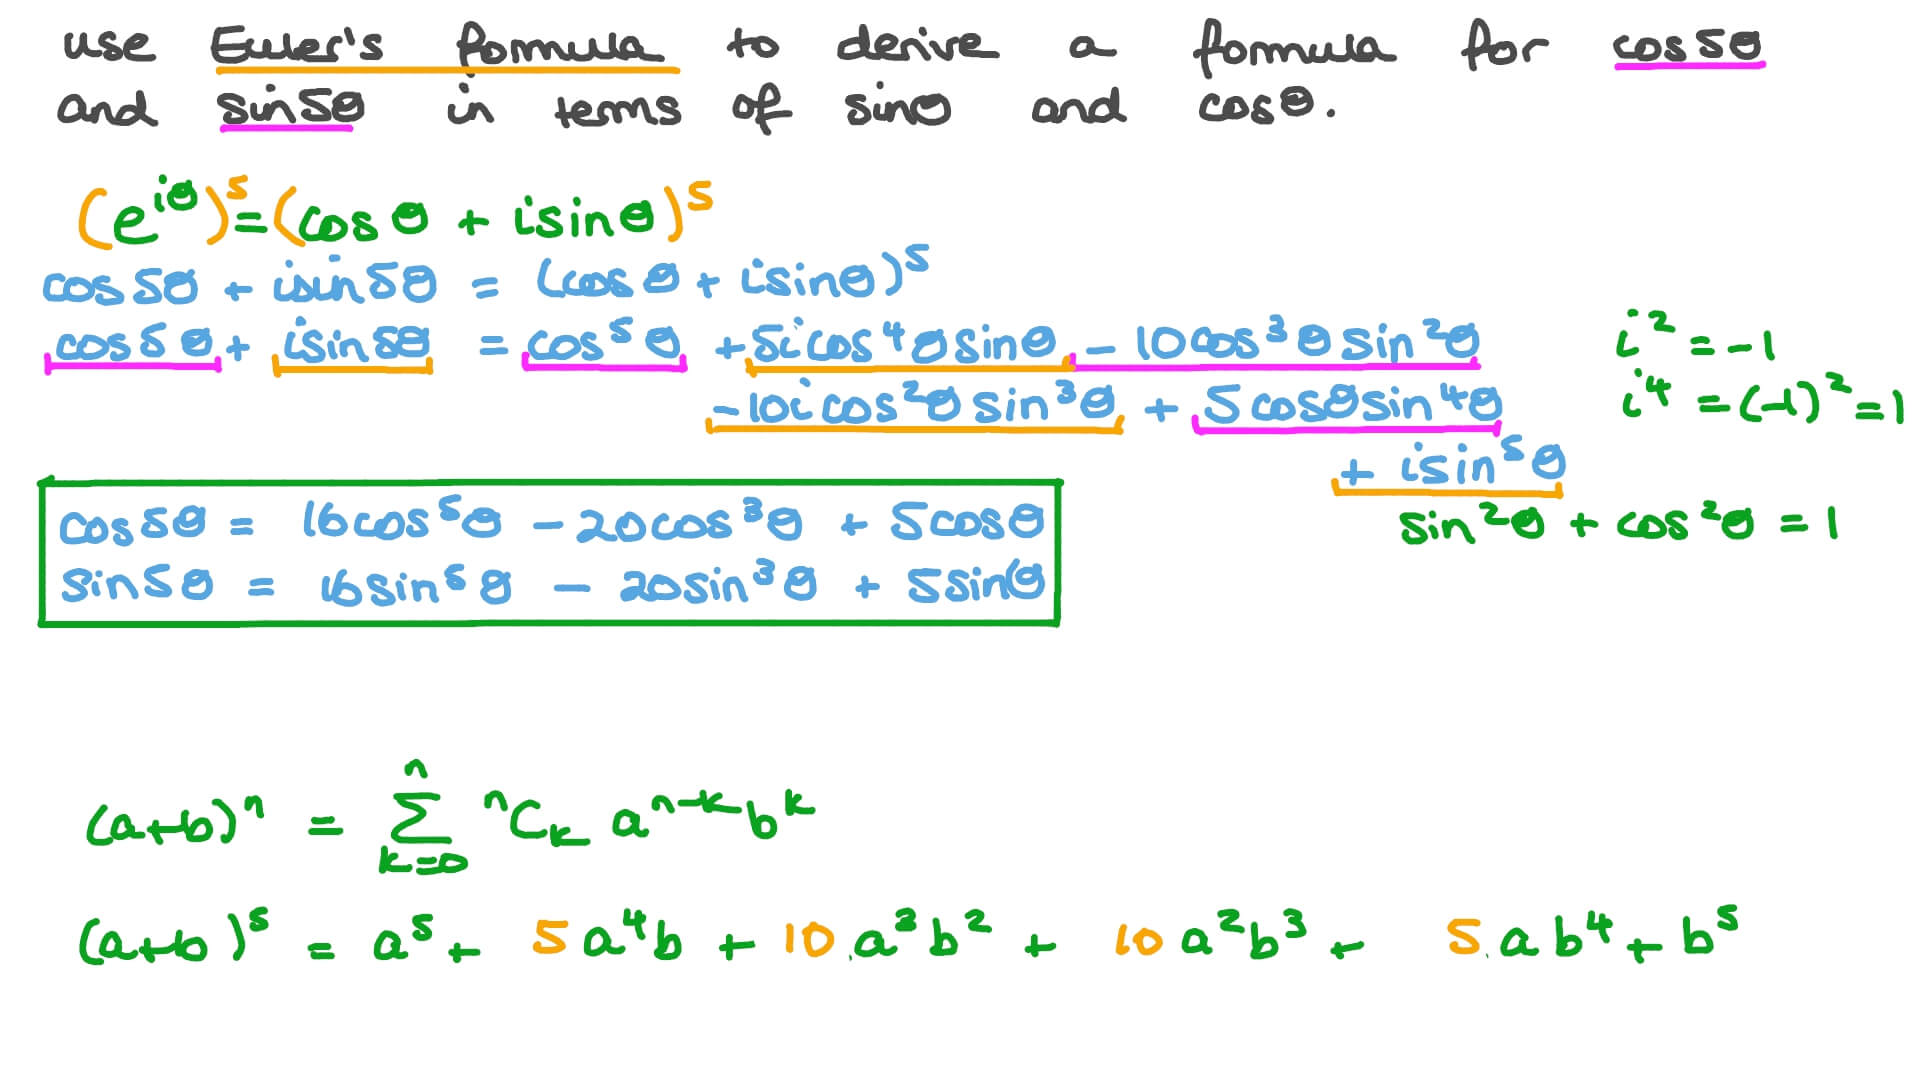 use Euler's formula to derive a formula for cos5θ
and sin5θ in terms of sinθ and cosθ.
(e^{iθ})^5 = (cosθ + isinθ)^5
cos5θ + isin5θ = (cosθ + isinθ)^5
cos5θ + isin5θ = cos^5θ + 5icos^4θsinθ - 10cos^3θsin^2θ
i^2 = -1
- 10icos^2θsin^3θ + 5cosθsin^4θ
i^4 = (-1)^2 = 1
+ isin^5θ
sin^2θ + cos^2θ = 1
cos5θ = 16cos^5θ - 20cos^3θ + 5cosθ
sin5θ = 16sin^5θ - 20sin^3θ + 5sinθ
(a+b)^n = \sum_{k=0}^{n} ^nC_k a^{n-k}b^k
(a+b)^5 = a^5 + 5a^4b + 10.a^3b^2 + 10a^2b^3 + 5.ab^4 + b^5